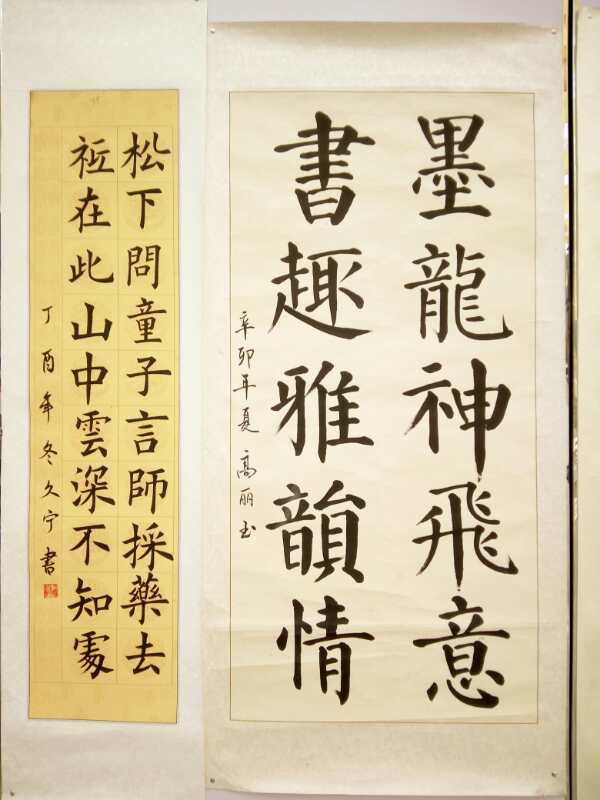 墨龍神飛意
書趣雅韻情
辛卯年夏 高丽玉
松下問童子言師採藥去
祗在此山中雲深不知處
丁酉年冬久宁書